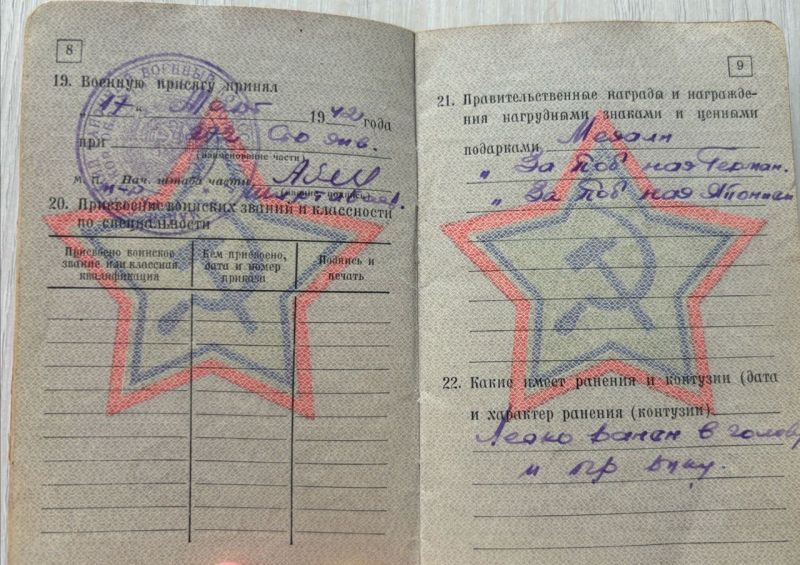 8
19. Военную присягу принял
"17" Март 1942 года
при
(наименование части)
М. П. Нач. штаба части
20. Присвоение воинских званий и классности
по специальности
Присвоено воинское
звание или классная
квалификация
Кем присвоено,
дата и номер
приказа
Подпись и
печать
9
21. Правительственные награды и награжде-
ния нагрудными знаками и ценными
подарками Медали
„За Поб ная Герман.
„За Поб ная Японией
22. Какие имеет ранения и контузии (дата
и характер ранения (контузии)
Легко ранен в голову
и пр